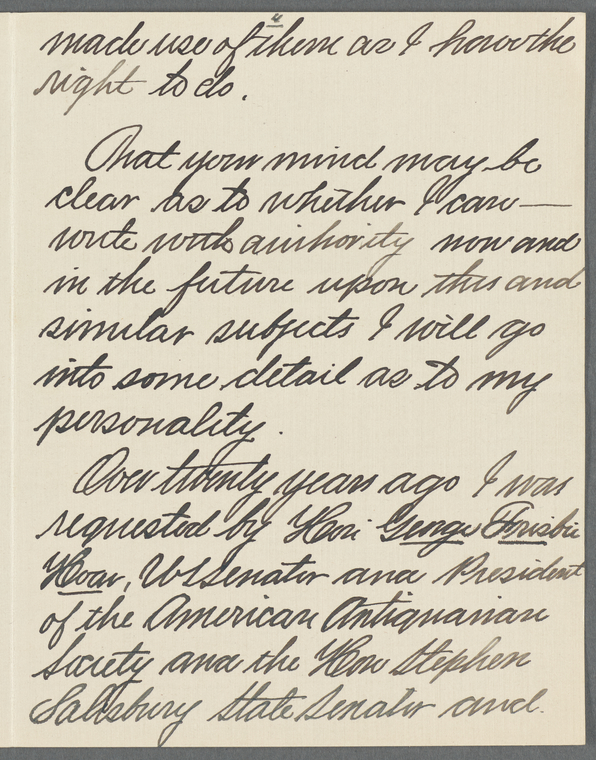 4
made use of them as I have the
right to do.
That your mind may be
clear as to whether I can —
write with authority now and
in the future upon this and
similar subjects I will go
into some detail as to my
personality.
Over twenty years ago I was
requested by Hon George Frisbie
Hoar, US Senator and President
of the American Antiquarian
Society and the Hon Stephen
Salisbury State Senator and.